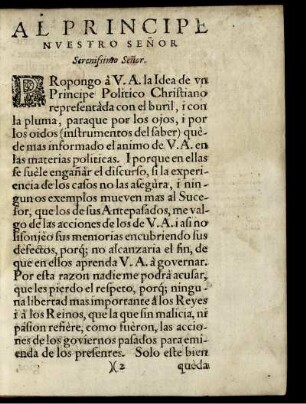 AL PRINCIPE
NVESTRO SEÑOR
Serenissimo Señor.
PRopongo à V. A. la Idea de vn
Principe Politico Christiano
representàda con el buril, i con
la pluma, paraque por los ojos, i por
los oidos (instrumentos del saber) què-
de mas informado el animo de V. A. en
las materias politicas. I porque en ellas
se suèle engañár el discurso, si la experi-
encia de los casos no las asegùra, i nin-
gunos exemplos mueven mas al Suce-
sor, que los de sus Antepasádos, me val-
go de las acciones de los de V. A. i asi no
lisonjèo sus memorias encubriendo sus
defectos, porq; no alcanzaria el fin, de
que en ellos aprenda V. A. à governar.
Por esta razon nadie me podrà acusar,
que les pierdo el respeto, porq; ningu-
na libertad mas importante à los Reyes
i à los Reinos, que la que sin malicia, ni
pasion refière, como fuèron, las accio-
nes de los goviernos pasados para emi-
enda de los presentes. Solo este bien
)(2 quèda